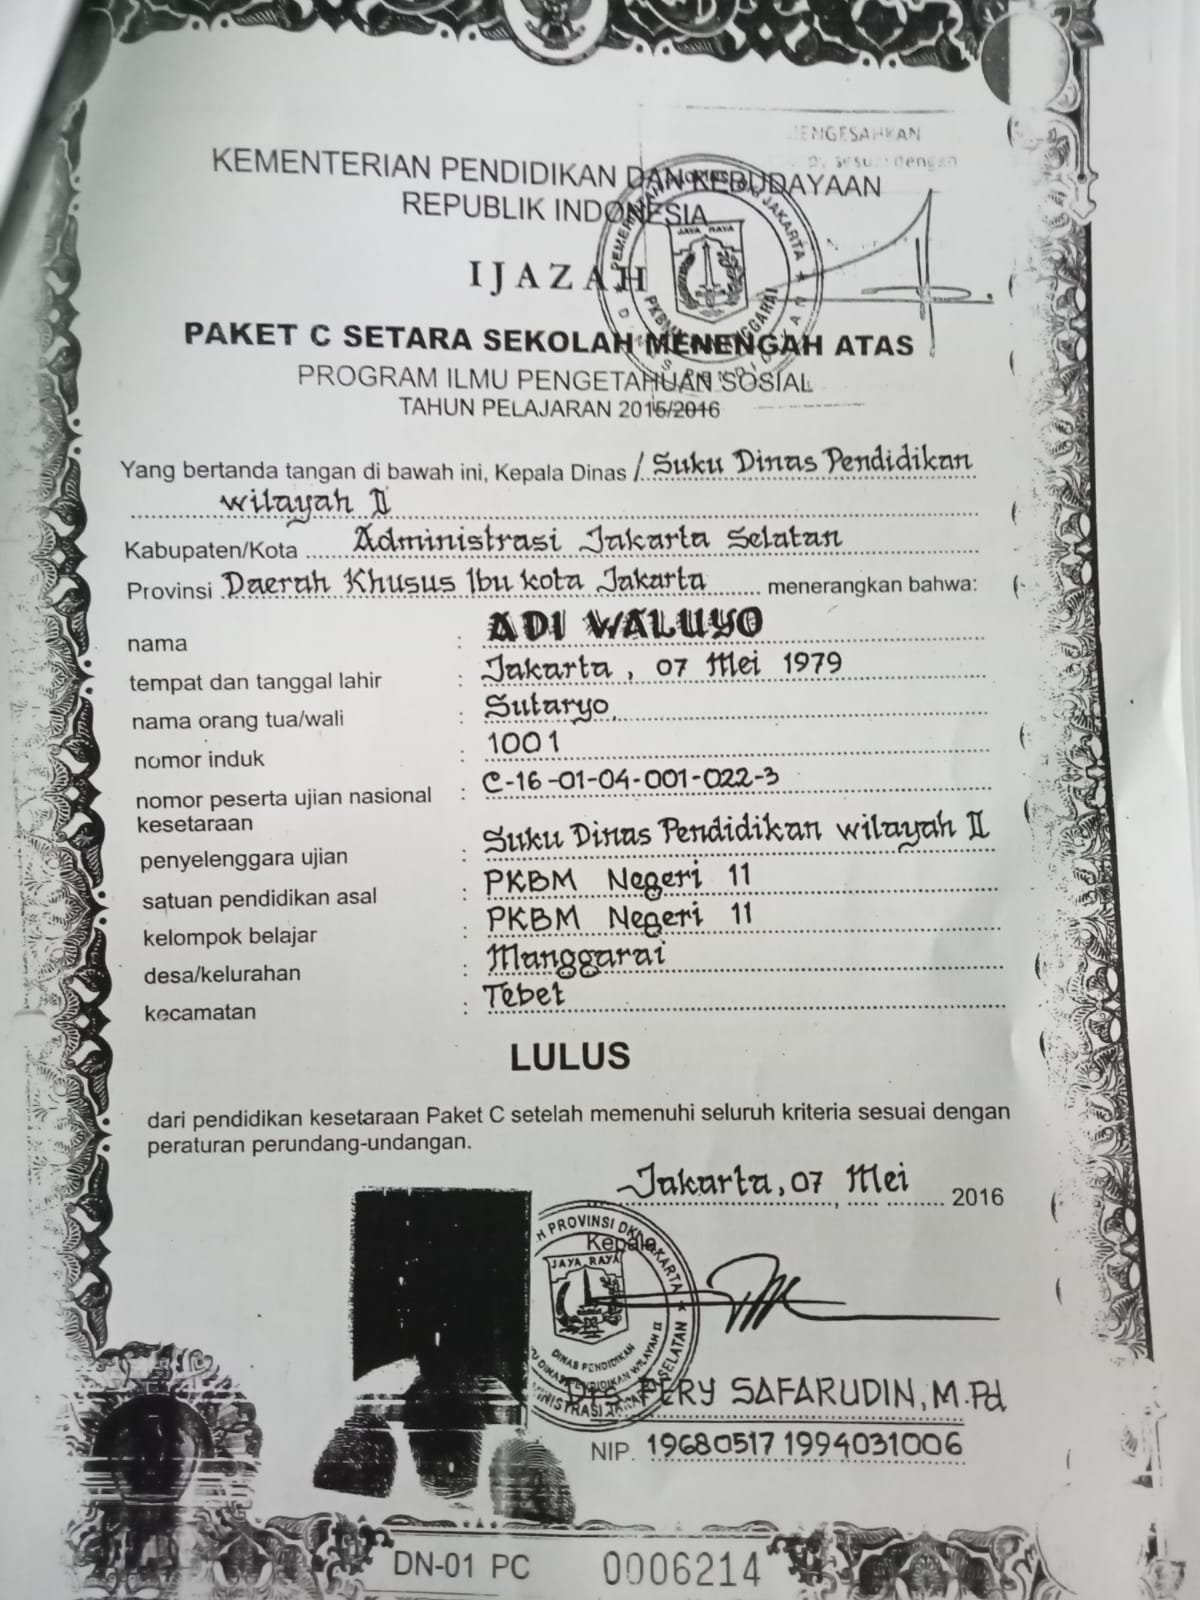 MENGESAHKAN
Sesuai dengan
KEMENTERIAN PENDIDIKAN DAN KEBUDAYAAN
REPUBLIK INDONESIA
IJAZAH
PAKET C SETARA SEKOLAH MENENGAH ATAS
PROGRAM ILMU PENGETAHUAN SOSIAL
TAHUN PELAJARAN 2015/2016
Yang bertanda tangan di bawah ini, Kepala Dinas / Suku Dinas Pendidikan
wilayah II
Kabupaten/Kota Administrasi Jakarta Selatan
Provinsi Daerah Khusus Ibu kota Jakarta menerangkan bahwa:
nama : ADI WALUYO
tempat dan tanggal lahir : Jakarta, 07 Mei 1979
nama orang tua/wali : Sutaryo
nomor induk : 1001
nomor peserta ujian nasional : C-16-01-04-001-022-3
kesetaraan
penyelenggara ujian : Suku Dinas Pendidikan wilayah II
satuan pendidikan asal : PKBM Negeri 11
kelompok belajar : PKBM Negeri 11
desa/kelurahan : Manggarai
kecamatan : Tebet
LULUS
dari pendidikan kesetaraan Paket C setelah memenuhi seluruh kriteria sesuai dengan
peraturan perundang-undangan.
Jakarta, 07 Mei 2016
Kepala
JAYA RAYA
DINAS PENDIDIKAN
SAFARUDIN, M.Pd
NIP. 19680517 1994031006
DN-01 PC 0006214